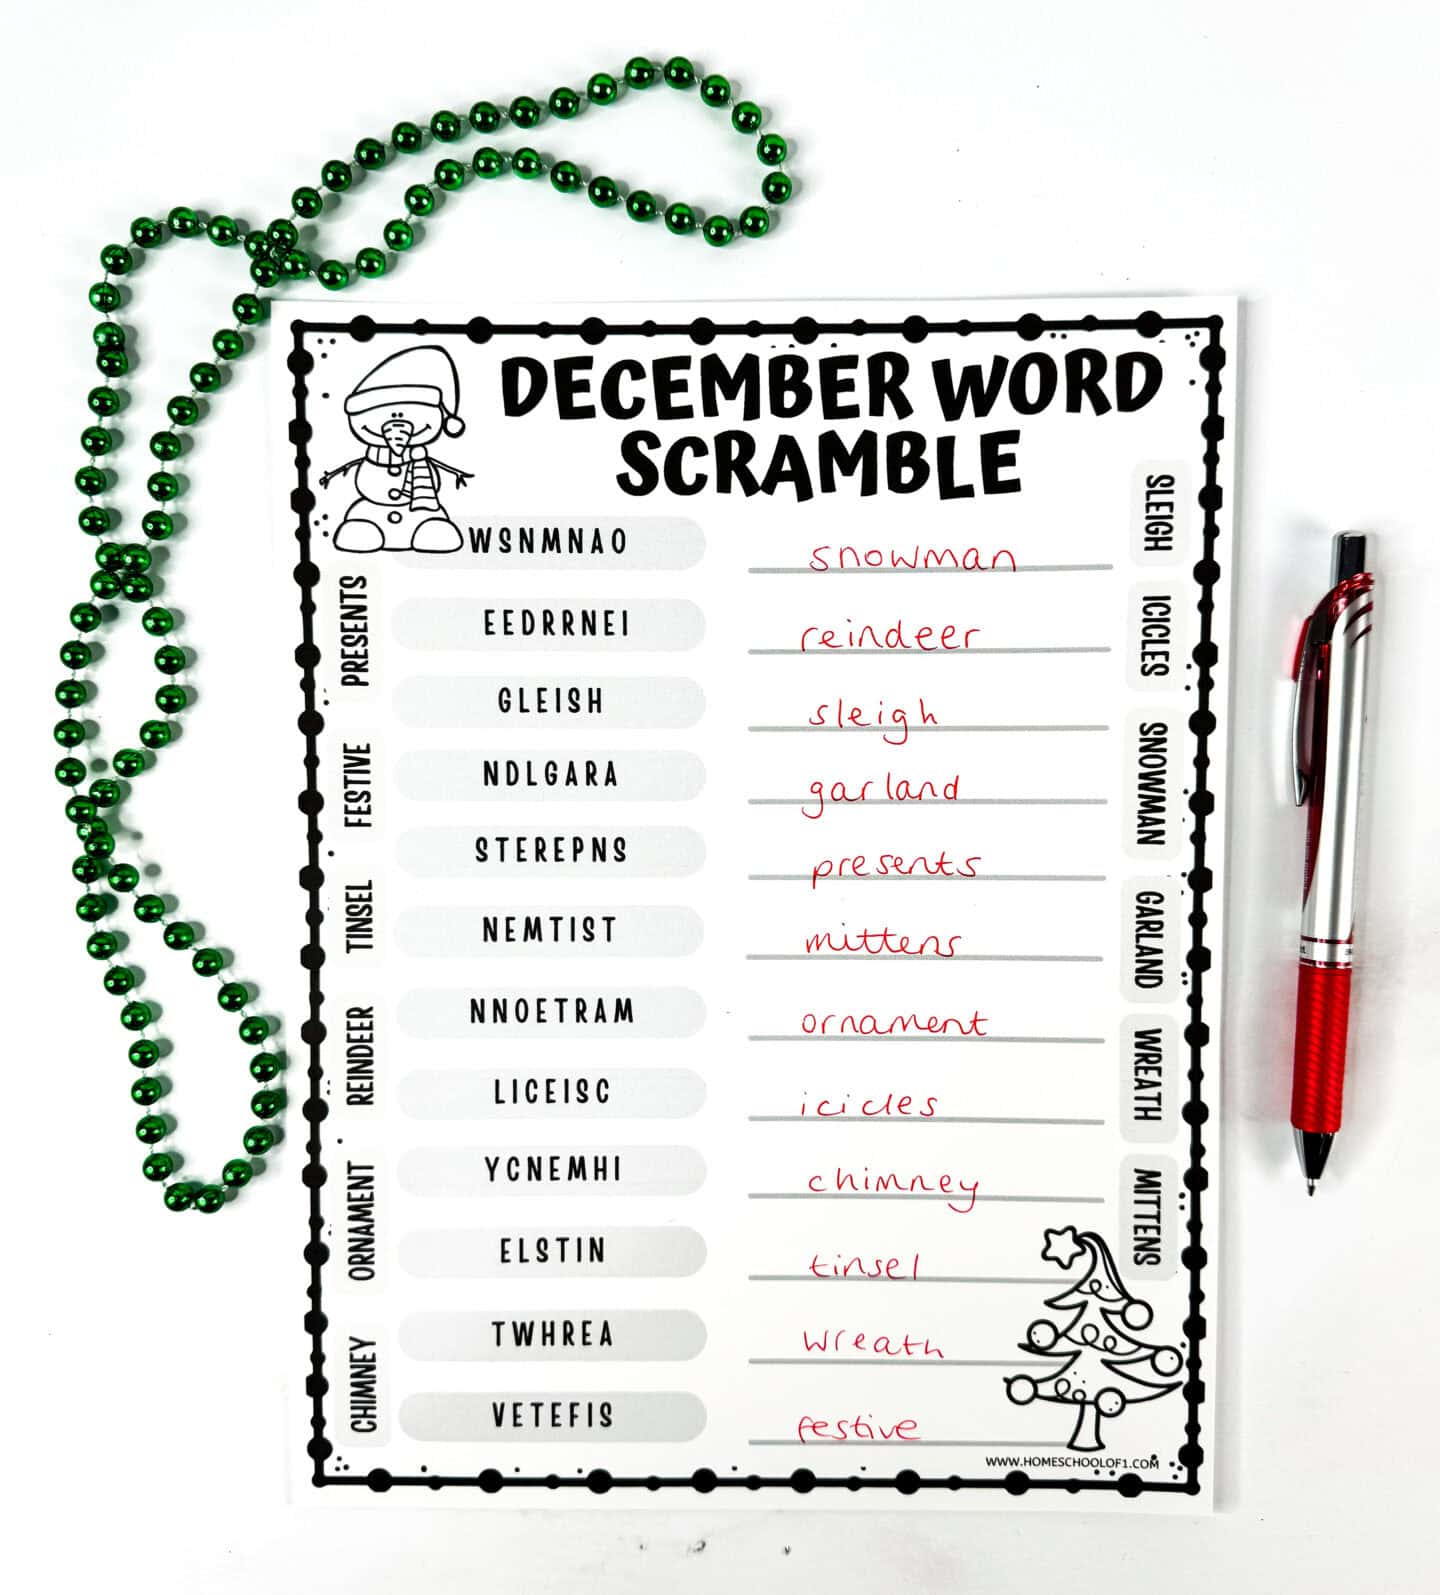 DECEMBER WORD
SCRAMBLE
WSNMNAO snowman
EEDRRNEI reindeer
GLEISH sleigh
NDLGARA garland
STEREPNS presents
NEMTIST mittens
NNOETRAM ornament
LICEISC icicles
YCNEMHI chimney
ELSTIN tinsel
TWHREA wreath
VETEFIS festive
PRESENTS
FESTIVE
TINSEL
REINDEER
ORNAMENT
CHIMNEY
SLEIGH
ICICLES
SNOWMAN
GARLAND
WREATH
MITTENS
WWW.HOMESCHOOLOF1.COM